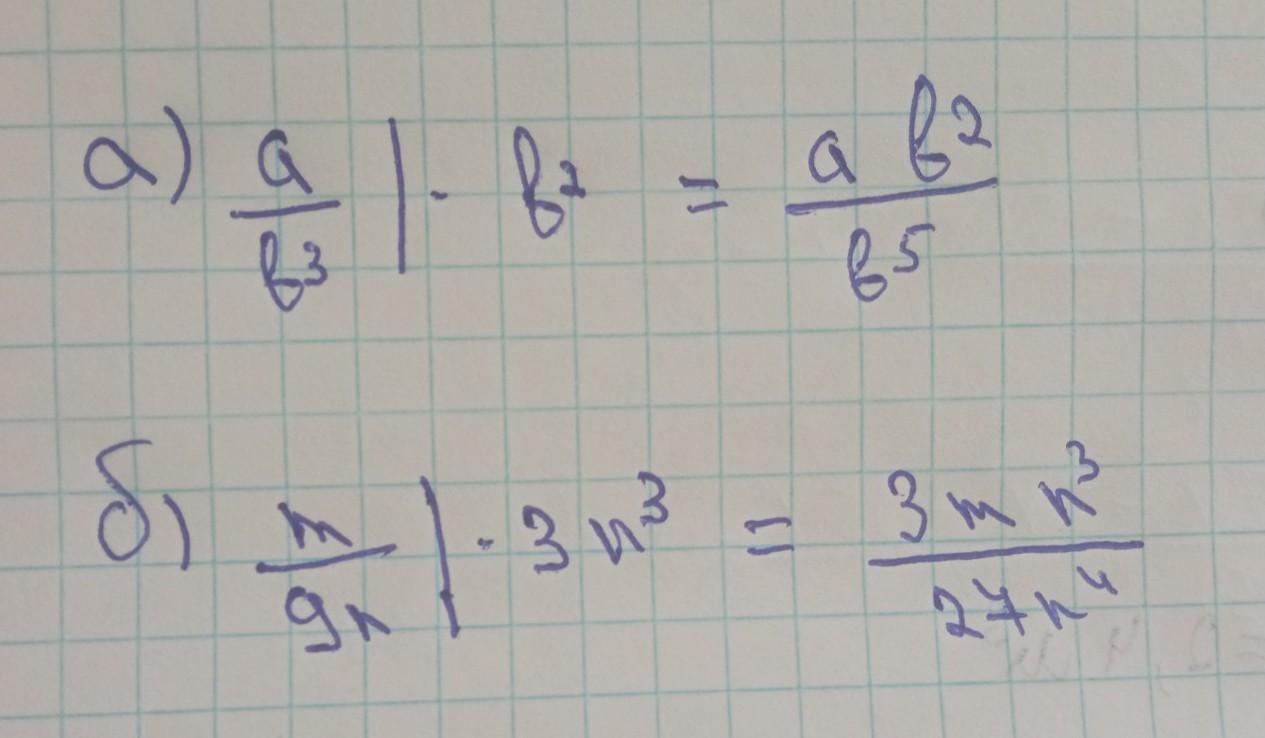 а) a/b³ | · b² = a b²/b⁵
б) m/9n | · 3n³ = 3mn³/27n⁴